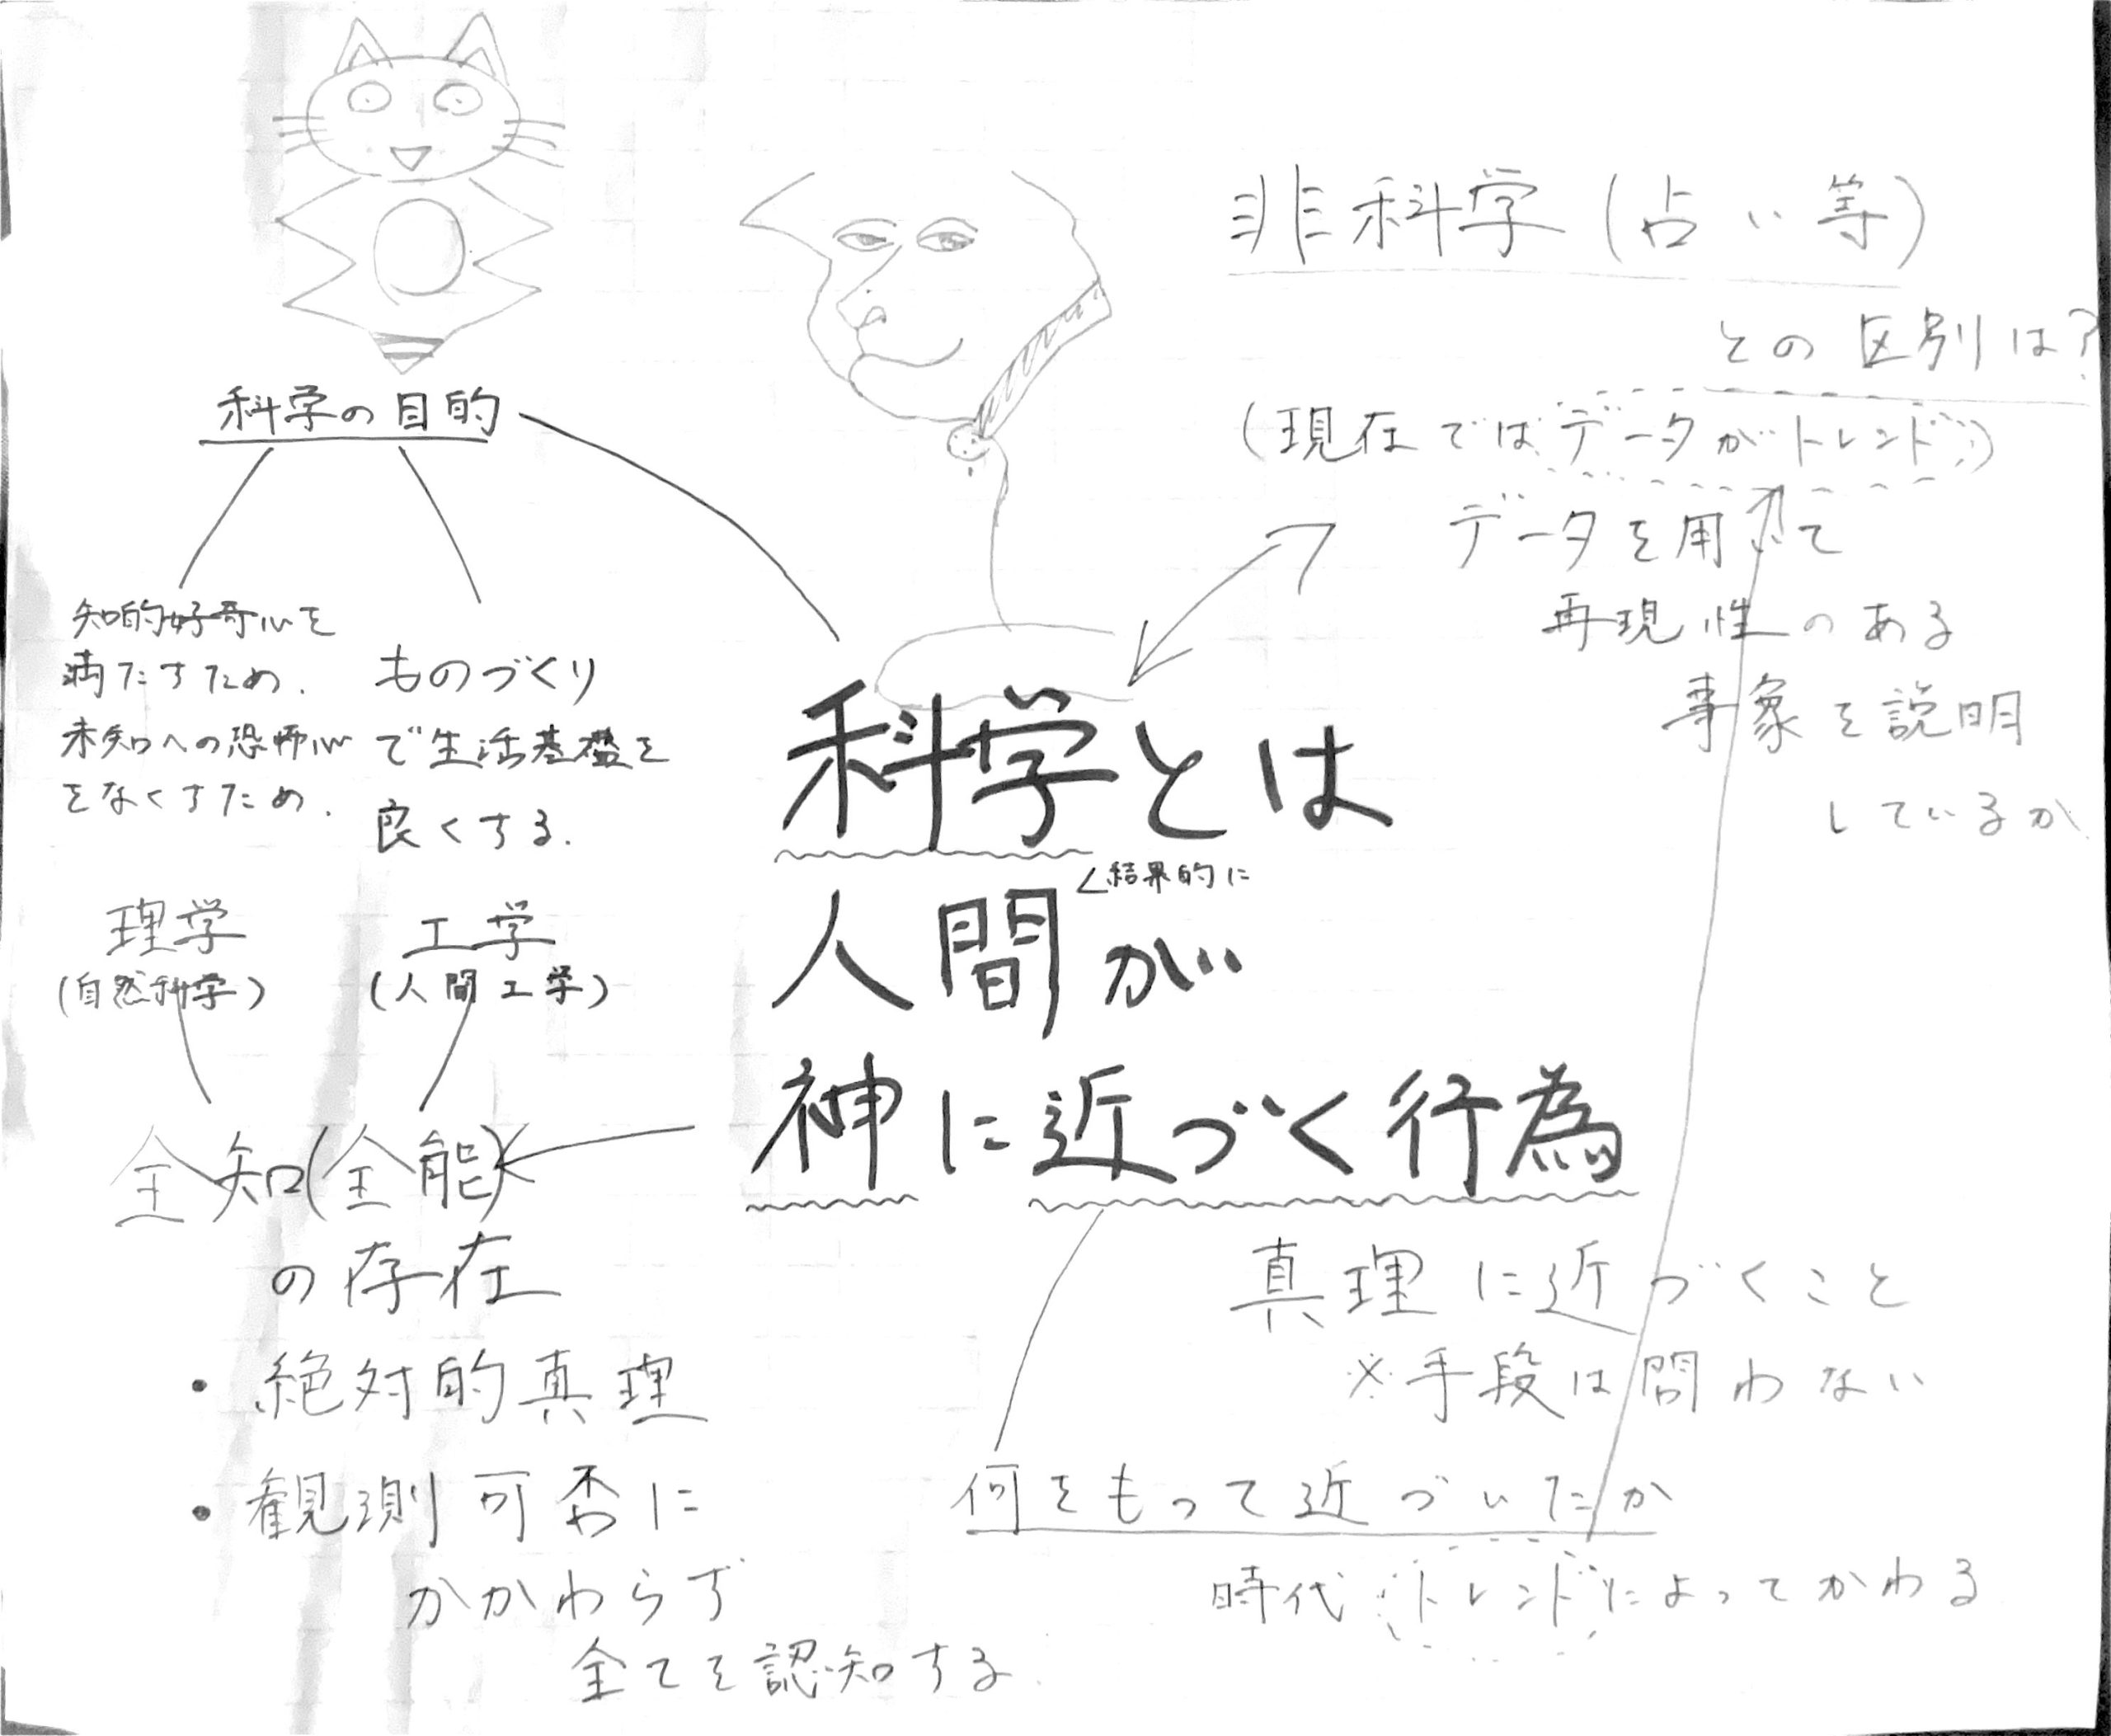 非科学(占い等)
との区別は?
(現在ではデータがトレンド)
データを用いて
再現性のある
事象を説明
しているか
科学の目的
知的好奇心を
満たすため.
未知への恐怖心
をなくすため.
理学
(自然科学)
ものづくり
で生活基盤を
良くする.
工学
(人間工学)
科学とは
<結果的に
人間が
神に近づく行為
全知(全能)
の存在
・絶対的真理
・観測可否に
かかわらず
全てを認知する
真理に近づくこと
※手段は問わない
何をもって近づいたか
時代トレンドによってかわる